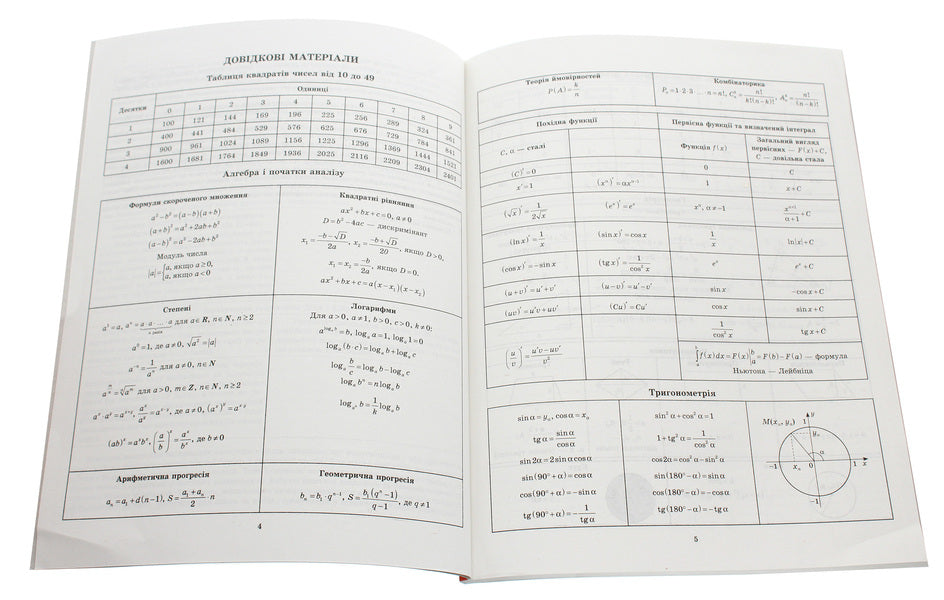 ДОВІДКОВІ МАТЕРІАЛИ
Таблиця квадратів чисел від 10 до 49
Десятки
Одиниці
0 1 2 3 4 5 6 7 8 9
1 100 121 144 169 196 225 256 289 324 361
2 400 441 484 529 576 625 676 729 784 841
3 900 961 1024 1089 1156 1225 1296 1369 1444 1521
4 1600 1681 1764 1849 1936 2025 2116 2209 2304 2401
Алгебра і початки аналізу
Формули скороченого множення
a²−b²=(a−b)(a+b)
(a+b)²=a²+2ab+b²
(a−b)²=a²−2ab+b²
Модуль числа
|a|={a, якщо a≥0,
a, якщо a<0
Квадратні рівняння
ax²+bx+c=0, a≠0
D=b²−4ac — дискримінант
x₁=(−b−√D)/2a, x₂=(−b+√D)/2a, якщо D>0,
x₁=x₂=−b/2a, якщо D=0.
ax²+bx+c=a(x−x₁)(x−x₂)
Степені
a¹=a, aⁿ=a·a·...·a для a∈R, n∈N, n≥2
n разів
a⁰=1, де a≠0, √a²=|a|
a⁻ⁿ=1/aⁿ для a≠0, n∈N
a^(m/n)=ⁿ√aᵐ для a>0, m∈Z, n∈N, n≥2
aˣ·aʸ=aˣ⁺ʸ, aˣ/aʸ=aˣ⁻ʸ, де a≠0, (aˣ)ʸ=aˣ·ʸ
(ab)ˣ=aˣbˣ, (a/b)ˣ=aˣ/bˣ, де b≠0
Логарифми
Для a>0, a≠1, b>0, c>0, k≠0:
a^(logₐb)=b, logₐa=1, logₐ1=0
logₐ(b·c)=logₐb+logₐc
logₐ b/c=logₐb−logₐc
logₐbⁿ=n logₐb
log_(aᵏ) b=1/k logₐb
Арифметична прогресія
aₙ=a₁+d(n−1), S=(a₁+aₙ)/2·n
Геометрична прогресія
bₙ=b₁·qⁿ⁻¹, S=b₁(qⁿ−1)/(q−1), де q≠1
4
Теорія ймовірностей
P(A)=k/n
Комбінаторика
Pₙ=1·2·3...n=n!, Cₙᵏ=n!/(k!(n−k)!), Aₙᵏ=n!/(n−k)!
Похідна функції
C, α — сталі
(C)′=0
x′=1 (xᵅ)′=αxᵅ⁻¹
(√x)′=1/(2√x) (eˣ)′=eˣ
(lnx)′=1/x (sinx)′=cosx
(cosx)′=−sinx (tgx)′=1/cos²x
(u+v)′=u′+v′ (u−v)′=u′−v′
(uv)′=u′v+uv′ (Cu)′=Cu′
(u/v)′=(u′v−uv′)/v²
Первісна функції та визначений інтеграл
Функція f(x)
Загальний вигляд
первісних — F(x)+C,
C — довільна стала
0 C
1 x+C
xᵅ, α≠−1 xᵅ⁺¹/(α+1)+C
1/x ln|x|+C
eˣ eˣ+C
sinx −cosx+C
cosx sinx+C
1/cos²x tgx+C
∫ₐᵇf(x)dx=F(x)|ₐᵇ=F(b)−F(a) — формула
Ньютона — Лейбніца
Тригонометрія
sinα=yₐ, cosα=xₐ
tgα=sinα/cosα
sin2α=2sinαcosα
sin(90°+α)=cosα
cos(90°+α)=−sinα
tg(90°+α)=−1/tgα
sin²α+cos²α=1
1+tg²α=1/cos²α
cos2α=cos²α−sin²α
sin(180°−α)=sinα
cos(180°−α)=−cosα
tg(180°−α)=−tgα
M(xₐ, yₐ) 1 y
yₐ
α
−1 xₐ 0 1 x
−1
5